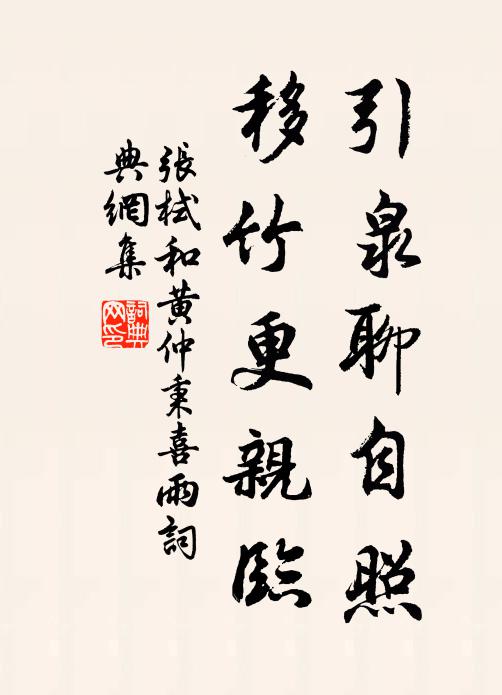 引泉聊自照
移竹更親臨
張栻和黃仲秉喜雨詞
典網集
詞典網印